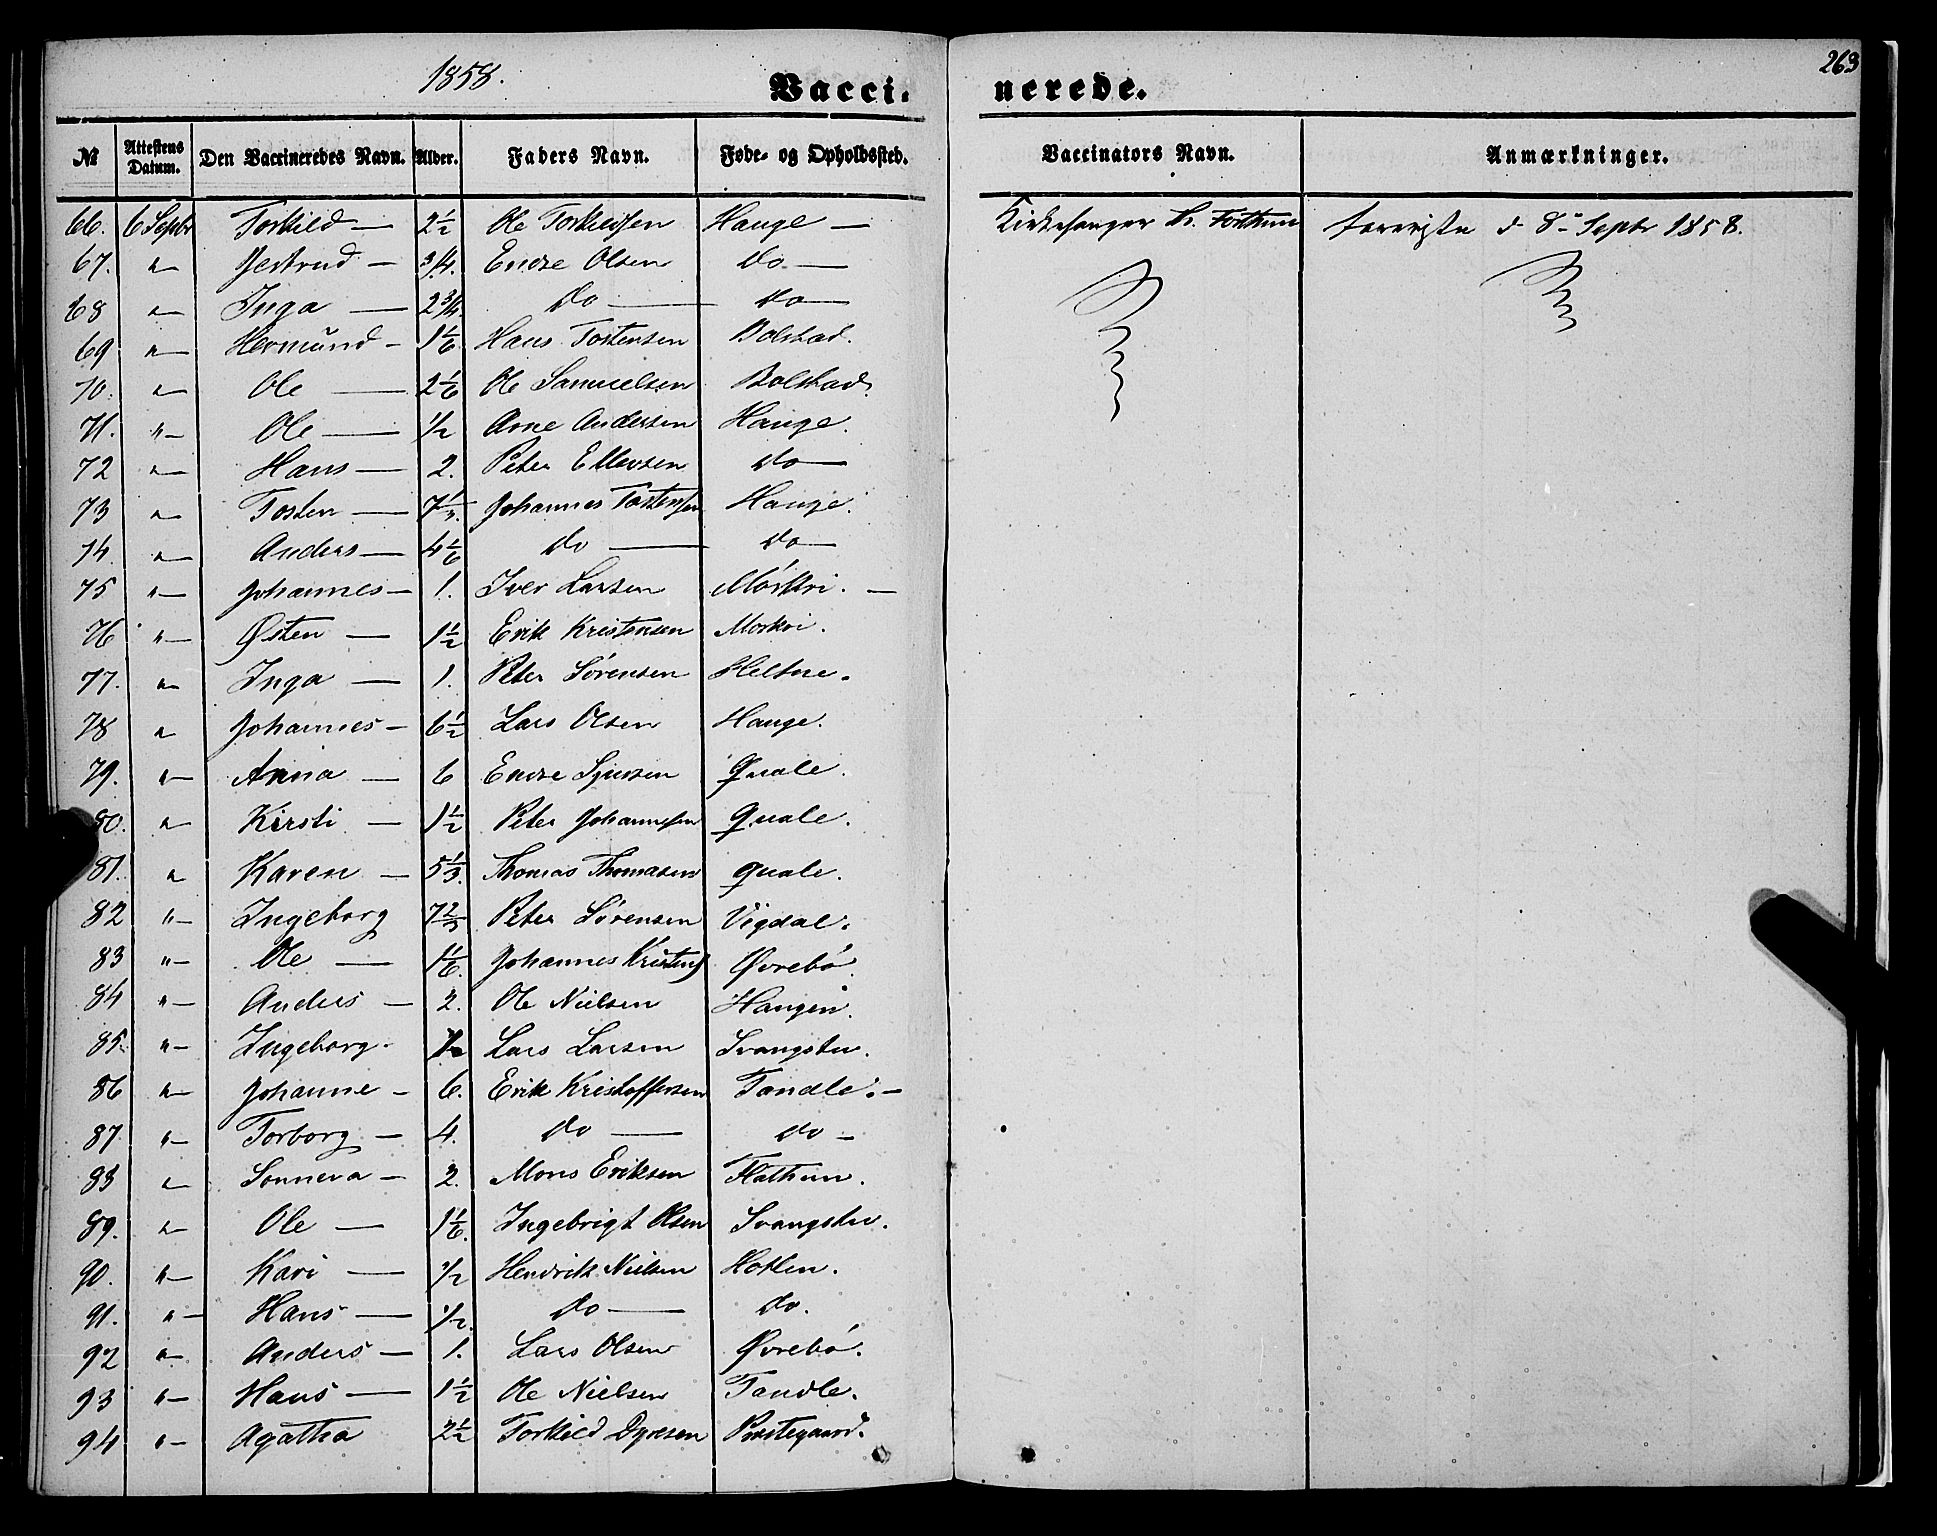 1858.
263
Vacci- nerede.
№ Attestens Datum. Den Vaccineredes Navn. Alder. Faders Navn. Føde- og Opholdssted. Vaccinators Navn. Anmærkninger.
66. 6 Septbr Torkild — 2½ Ole Torkildsen Hauge — Kirkesanger Forthun foreviste d 8de Septbr 1858.
67. " — Gertrud — 3/4. Endre Olsen do —
68 " — Inga — 2 3/4 do — do —
69 " — Hermund — 1 1/6 Hans Tostensen Bolstad.
70. " — Ole — 2 1/6 Ole Samuelsen Bolstad.
71. " — Ole — 1/2 Arne Andersen Hauge.
72 " — Hans — 2. Peter Ellevsen do —
73 " — Tosten — 7 1/3. Johannes Tostensen Hauge.
74. " — Anders — 4 1/6 do — do —
75 " — Johannes — 1. Iver Larsen Mørkri. —
76 " — Østen — 1½ Erik Kristensen Morkri.
77. " — Inga — 1. Peter Sørensen Heltne.
78 " Johannes — 6½ Lars Olsen Hauge.
79. " — Anna — 6 Endre Sjursen Quale.
80. " — Kirsti — 1½ Peter Johannesen Quale.
81. " Karen — 5 1/3. Thomas Thomasen Quale.
82 " — Ingeborg 7 2/3 Peter Sørensen Vigdal.
83 " — Ole — 1 1/6. Johannes Kristens Øvrebø.
84 " — Anders — 2. Ole Nielsen Haugen.
85. " — Ingeborg. Lars Larsen Svangstu.
86 " — Johanne — 6. Erik Kristoffersen Tandle. —
87. " — Torborg — 4. do — do —
88 " — Sonneva — 2. Mons Eriksen Flathun.
89. " — Ole — 1 1/6. Ingebrigt Olsen Svangstu.
90. " — Kari — 1/2 Hendrik Nielsen Hollen.
91. " — Hans — 1/2. do — do.
92 " — Anders — 1. Lars Olsen Øvrebø.
93 " — Hans — 1½ Ole Nielsen Tandle.
94 " — Agatha 2½ Torkild Dyresen Prestegaard.